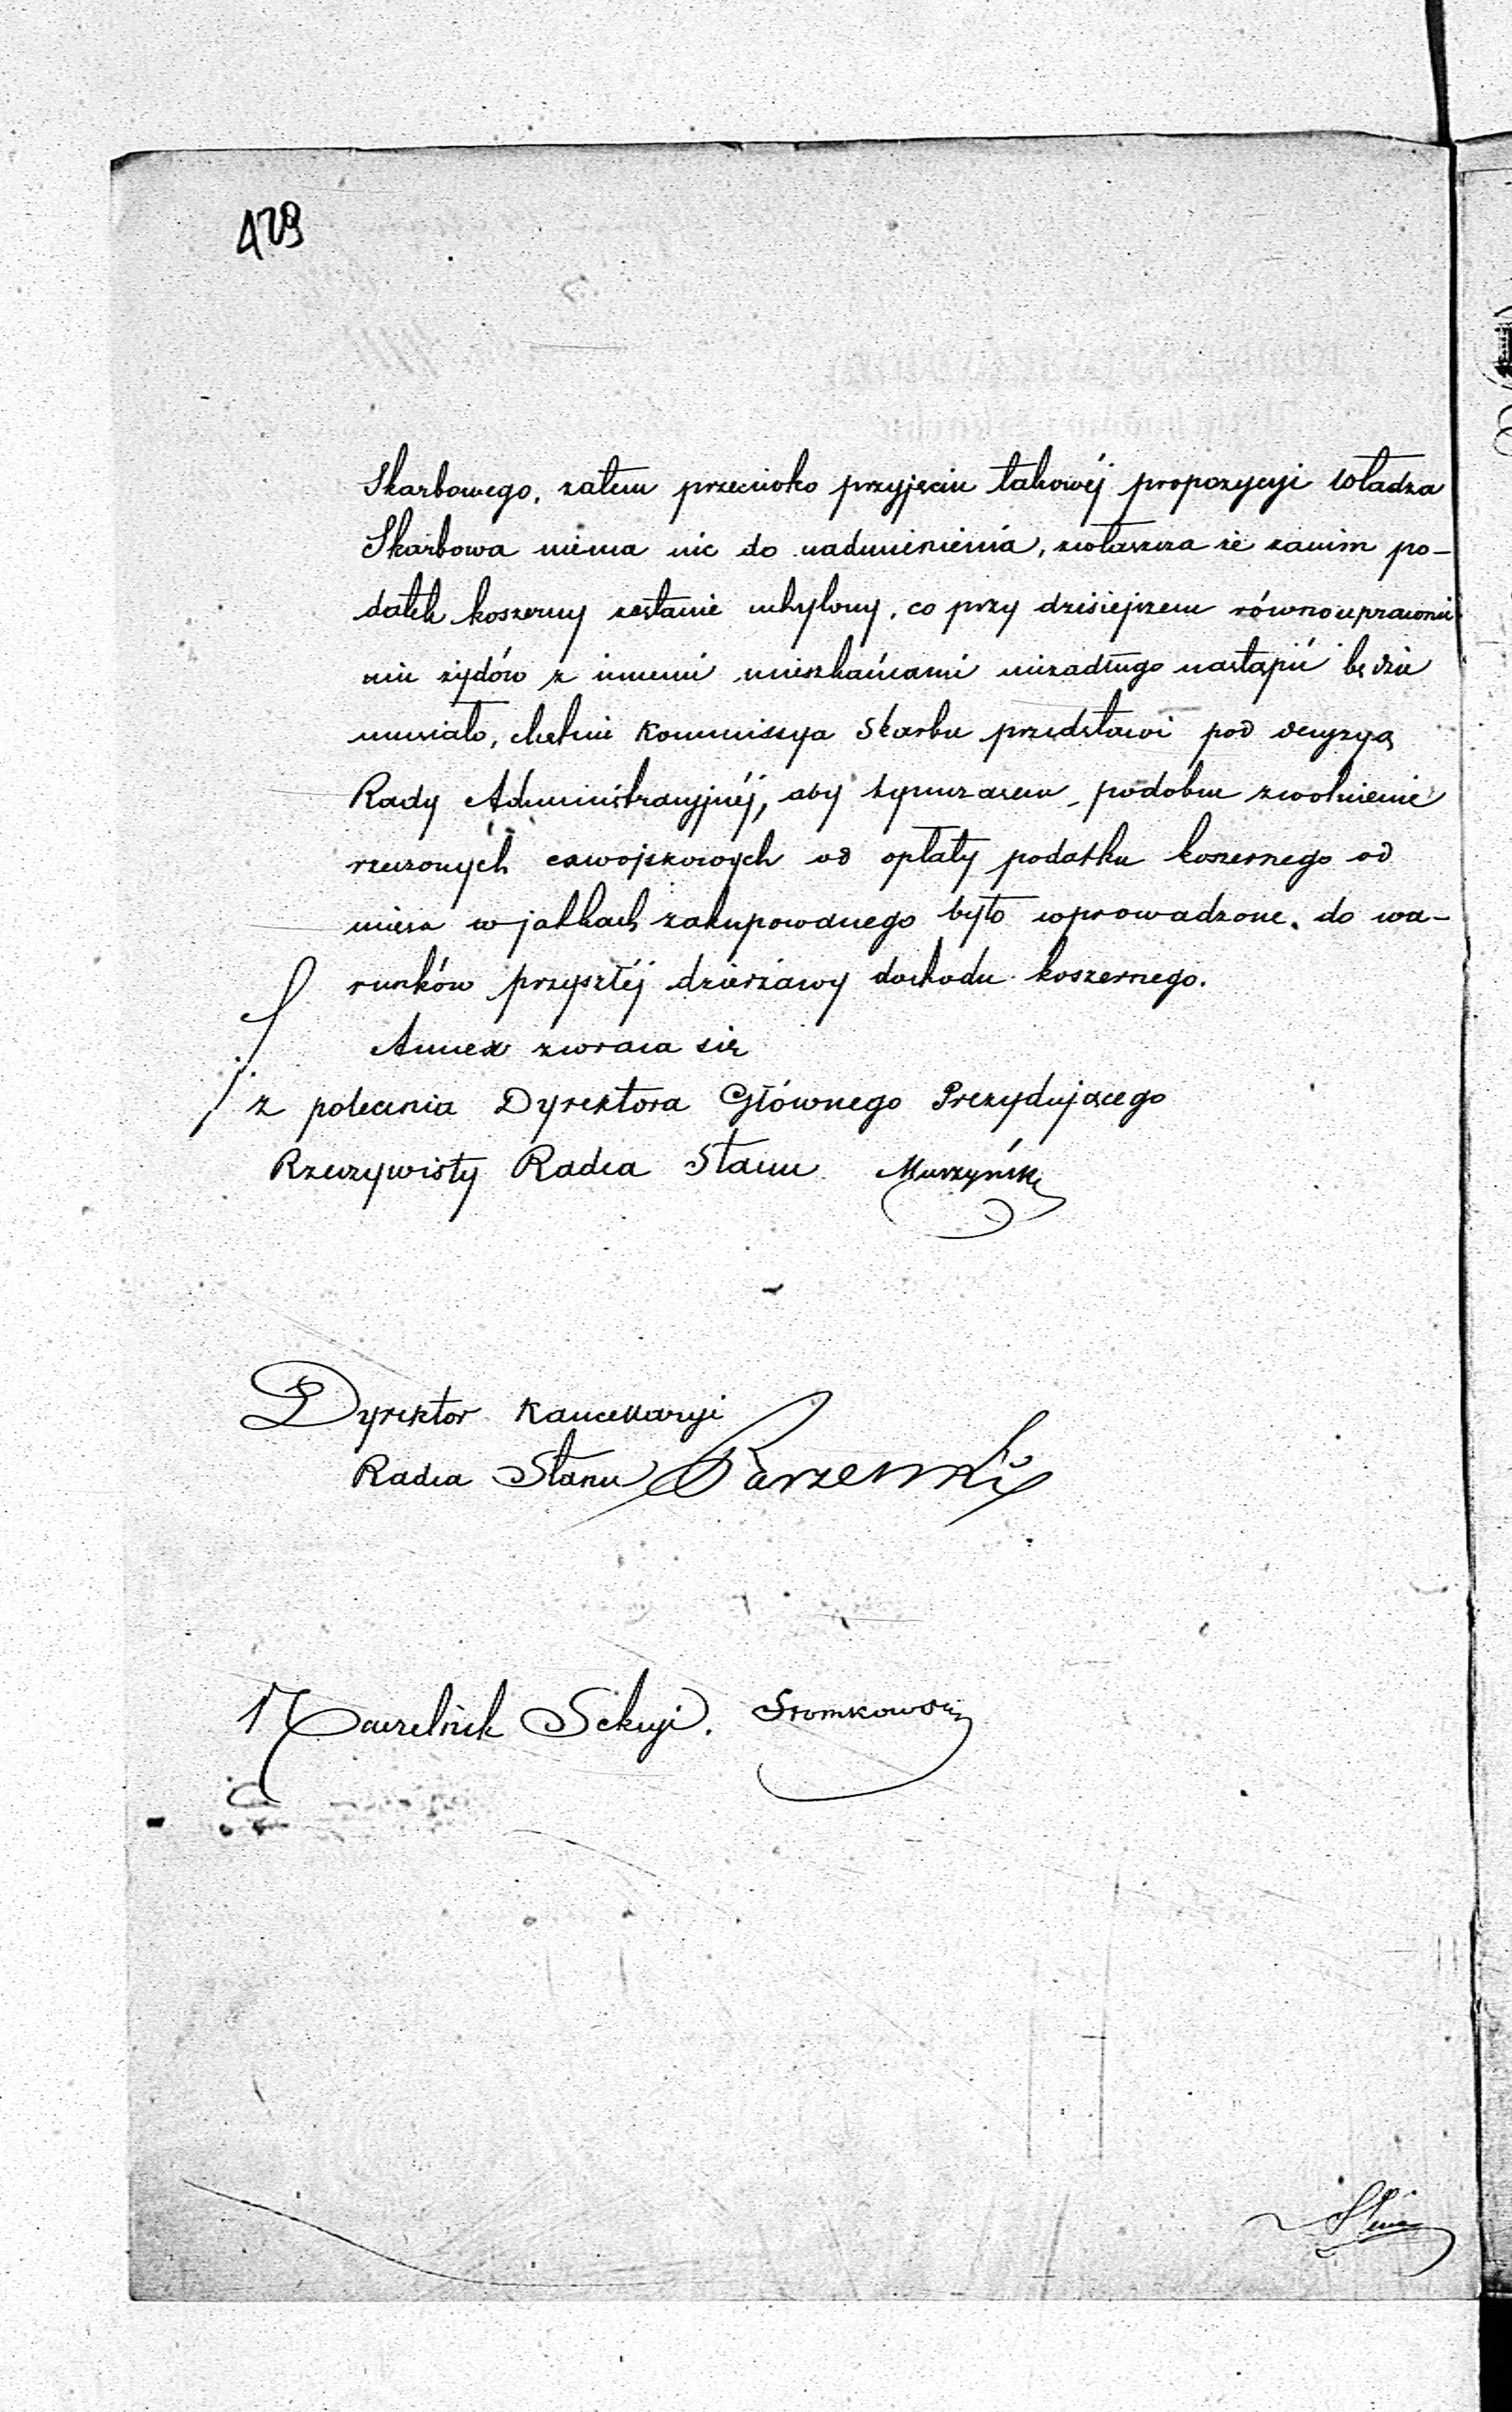 429
Skarbowego, zatem przeciwko przyjęciu takowéj propozycyi władza
Skarbowa niema nic do nadmienienia, zwłaszcza że zanim po-
datek koszerny zostanie uchylony, co przy dzisiejszem równouprawnie
niu żydów z innemi mieszkańcami niezadługo nastąpić będzie
musiało, chętnie Kommissya Skarbu przedstawi pod decyzyą
Rady Administracyjnéj, aby tymczasem podobne zwolnienie
rzeczonych exwojskowych od opłaty podatku koszernego od
mięsa w jatkach zakupowanego było wprowadzone do wa-
runków przyszłéj dzierżawy dochodu koszernego.
Annex zwraca się
z polecenia Dyrektora Głównego Prezydującego
Rzeczywisty Radca Stanu Muszyński
Dyrektor Kancellaryi
Radca Stanu
Naczelnik Sekcyi.